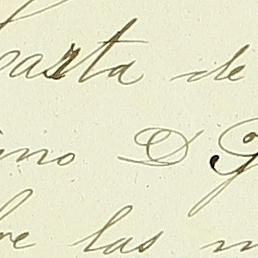 Carta de
ino D G
bre las m